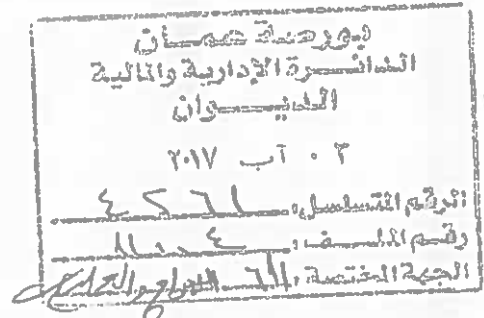 بورصة عمــان
الدائــرة الإدارية والمالية
الديـــوان
٠٢ آب ٢٠١٧
الرقم المتسلسل: ٤٢٦١
رقم الملــف:
الجهة المختصة: